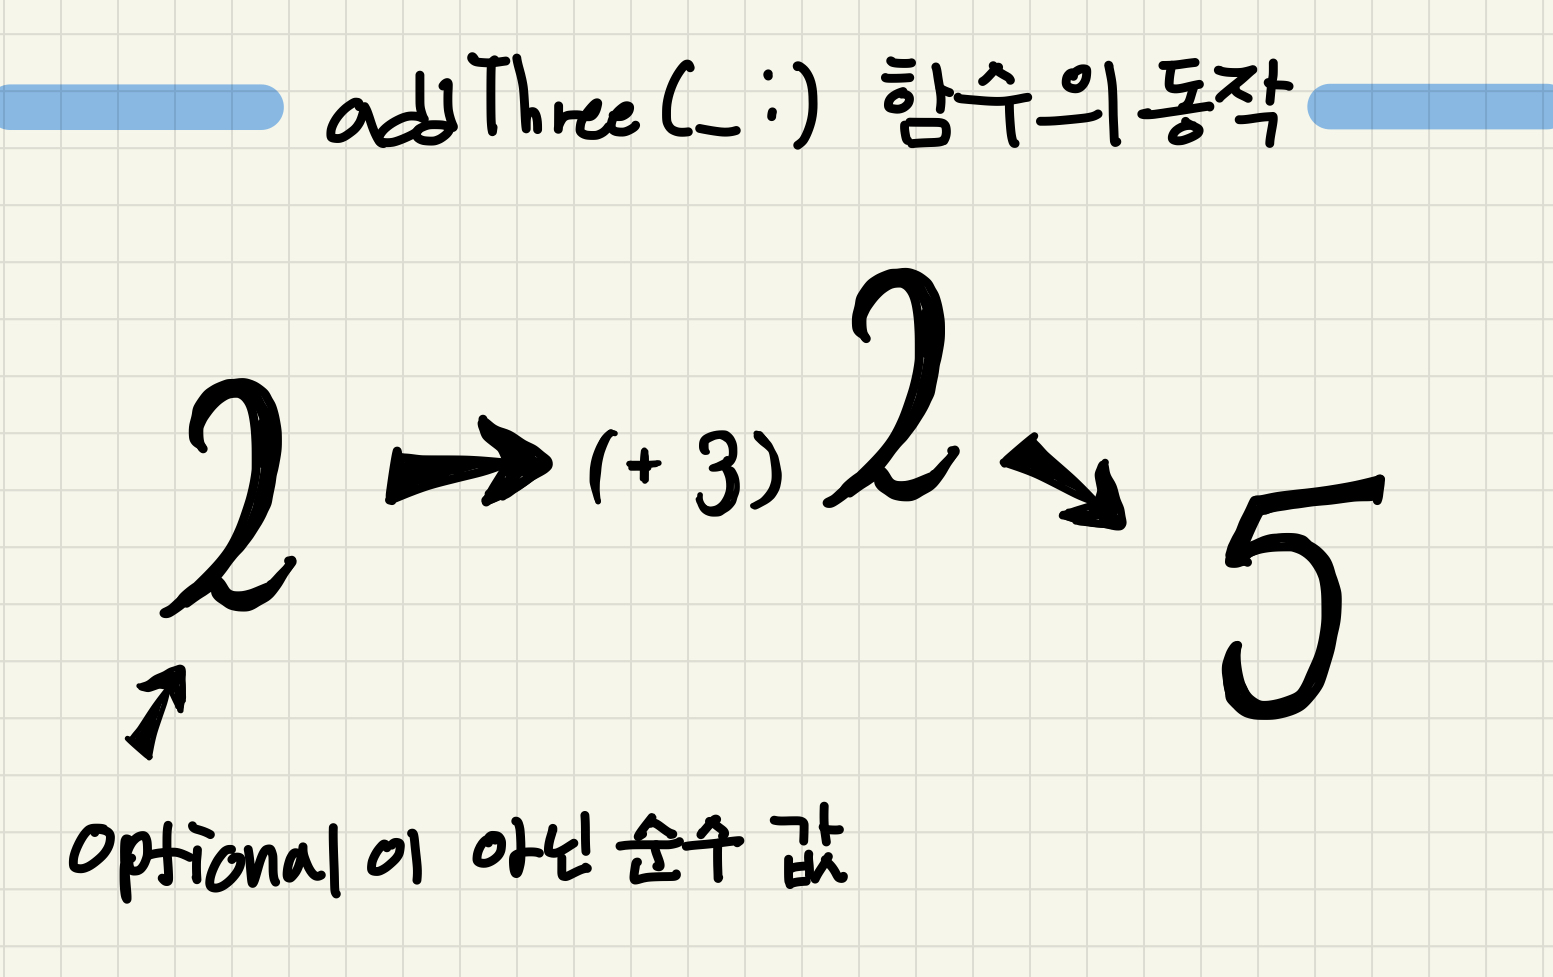 addThree(_:) 함수의 동작
2 (+3) 2 5
Optional이 아닌 순수 값